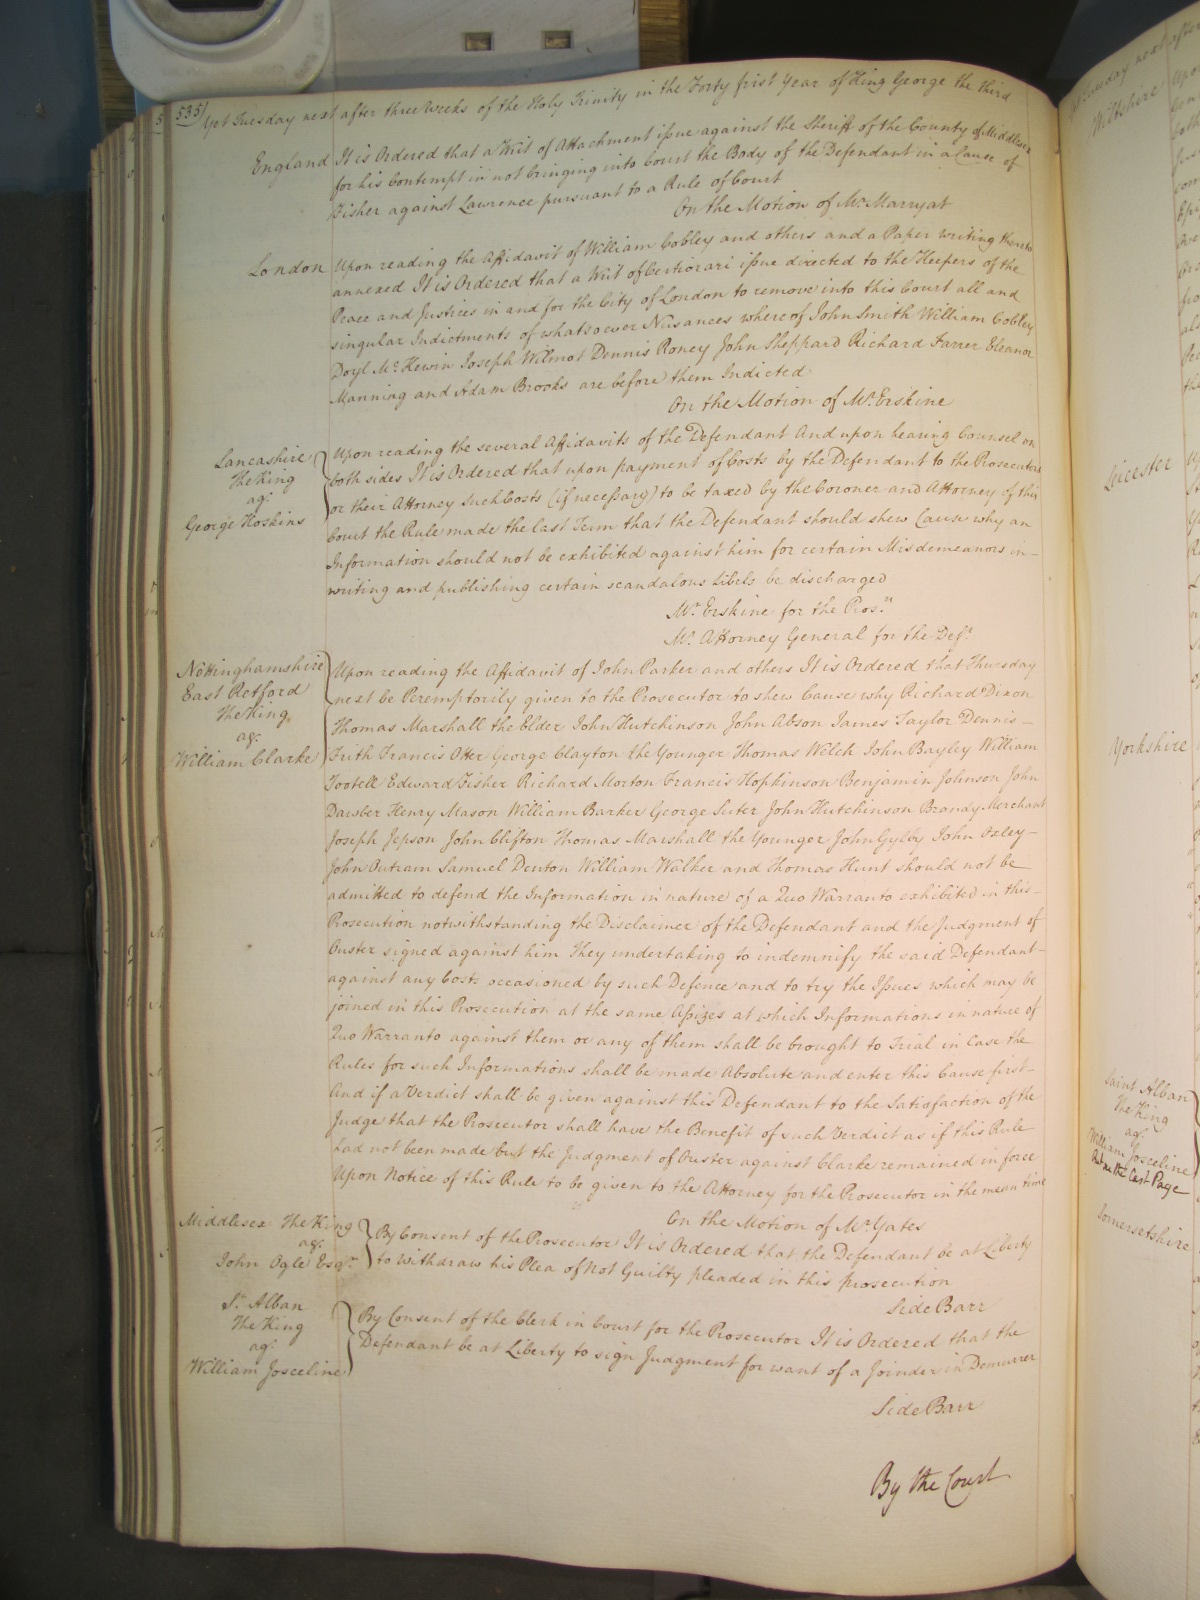 535
Yet Tuesday next after three Weeks of the Holy Trinity in the Forty first Year of King George the third
England
It is Ordered that a Writ of Attachment issue against the Sheriff of the County of Middlesex
for his Contempt in not bringing into Court the Body of the Defendant in a Cause of
Fisher against Lawrence pursuant to a Rule of Court
On the Motion of Mr. Marryat
London
Upon reading the Affidavit of William Cobley and others and a Paper writing thereto
annexed It is Ordered that a Writ of Certiorari issue directed to the Keepers of the
Peace and Justices in and for the City of London to remove into this Court all and
singular Indictments of whatsoever Nusances whereof John Smith William Cobley
Doyl Mc. Kewin Joseph Wilmot Dennis Roney John Sheppard Richard Farrer Eleanor
Manning and Adam Brooks are before them Indicted
On the Motion of Mr. Erskine
Lancashire
The King
agt.
George Hoskins
Upon reading the several Affidavits of the Defendant And upon hearing Counsel on
both sides It is Ordered that upon payment of Costs by the Defendant to the Prosecutors
or their Attorney such Costs (if necessary) to be taxed by the Coroner and Attorney of this
Court the Rule made the last Term that the Defendant should shew Cause why an
Information should not be exhibited against him for certain Misdemeanors in
writing and publishing certain scandalous Libels be discharged
Mr. Erskine for the Pros.rs
Mr. Attorney General for the Deft.
Nottinghamshire
East Retford
The King
agt.
William Clarke
Upon reading the Affidavit of John Parker and others It is Ordered that Thursday
next be Peremptorily given to the Prosecutor to shew Cause why Richard Dixon
Thomas Marshall the Elder John Hutchinson John Abson James Taylor Dennis
Frith Francis Otter George Clayton the Younger Thomas Welch John Bayley William
Tootell Edward Fisher Richard Morton Francis Hopkinson Benjamin Johnson John
Dawber Henry Mason William Barker George Suter John Hutchinson Brandy Merchant
Joseph Jepson John Clifton Thomas Marshall the Younger John Gylby John Oxley
John Outram Samuel Denton William Walker and Thomas Hunt should not be
admitted to defend the Information in nature of a Quo Warranto exhibited in this
Prosecution notwithstanding the Disclaimer of the Defendant and the Judgment of
Ouster signed against him They undertaking to indemnify the said Defendant
against any Costs occasioned by such Defence and to try the Issues which may be
joined in this Prosecution at the same Assizes at which Informations in nature of
Quo Warranto against them or any of them shall be brought to Trial in Case the
Rules for such Informations shall be made Absolute and enter this Cause first
And if a Verdict shall be given against this Defendant to the Satisfaction of the
Judge that the Prosecutor shall have the Benefit of such Verdict as if this Rule
had not been made but the Judgment of Ouster against Clarke remained in force
Upon Notice of this Rule to be given to the Attorney for the Prosecutor in the mean time
On the Motion of Mr. Yates
Middlesex The King
agt.
John Ogle Esqr.
By Consent of the Prosecutor It is Ordered that the Defendant be at Liberty
to withdraw his Plea of Not Guilty pleaded in this prosecution
Side Barr
St. Alban
The King
agt.
William Josceline
By Consent of the Clerk in Court for the Prosecutor It is Ordered that the
Defendant be at Liberty to sign Judgment for want of a Joinder in Demurrer
Side Barr
By the Court
Wiltshire
Leicester
Yorkshire
Saint Alban
The King
agt.
William Josceline
Put in the last Page
Somersetshire